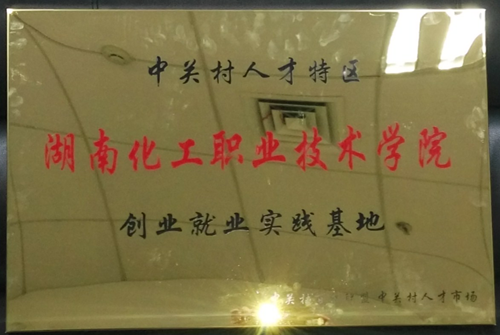 中关村人才特区
湖南化工职业技术学院
创业就业实践基地
中关村 中关村人才市场